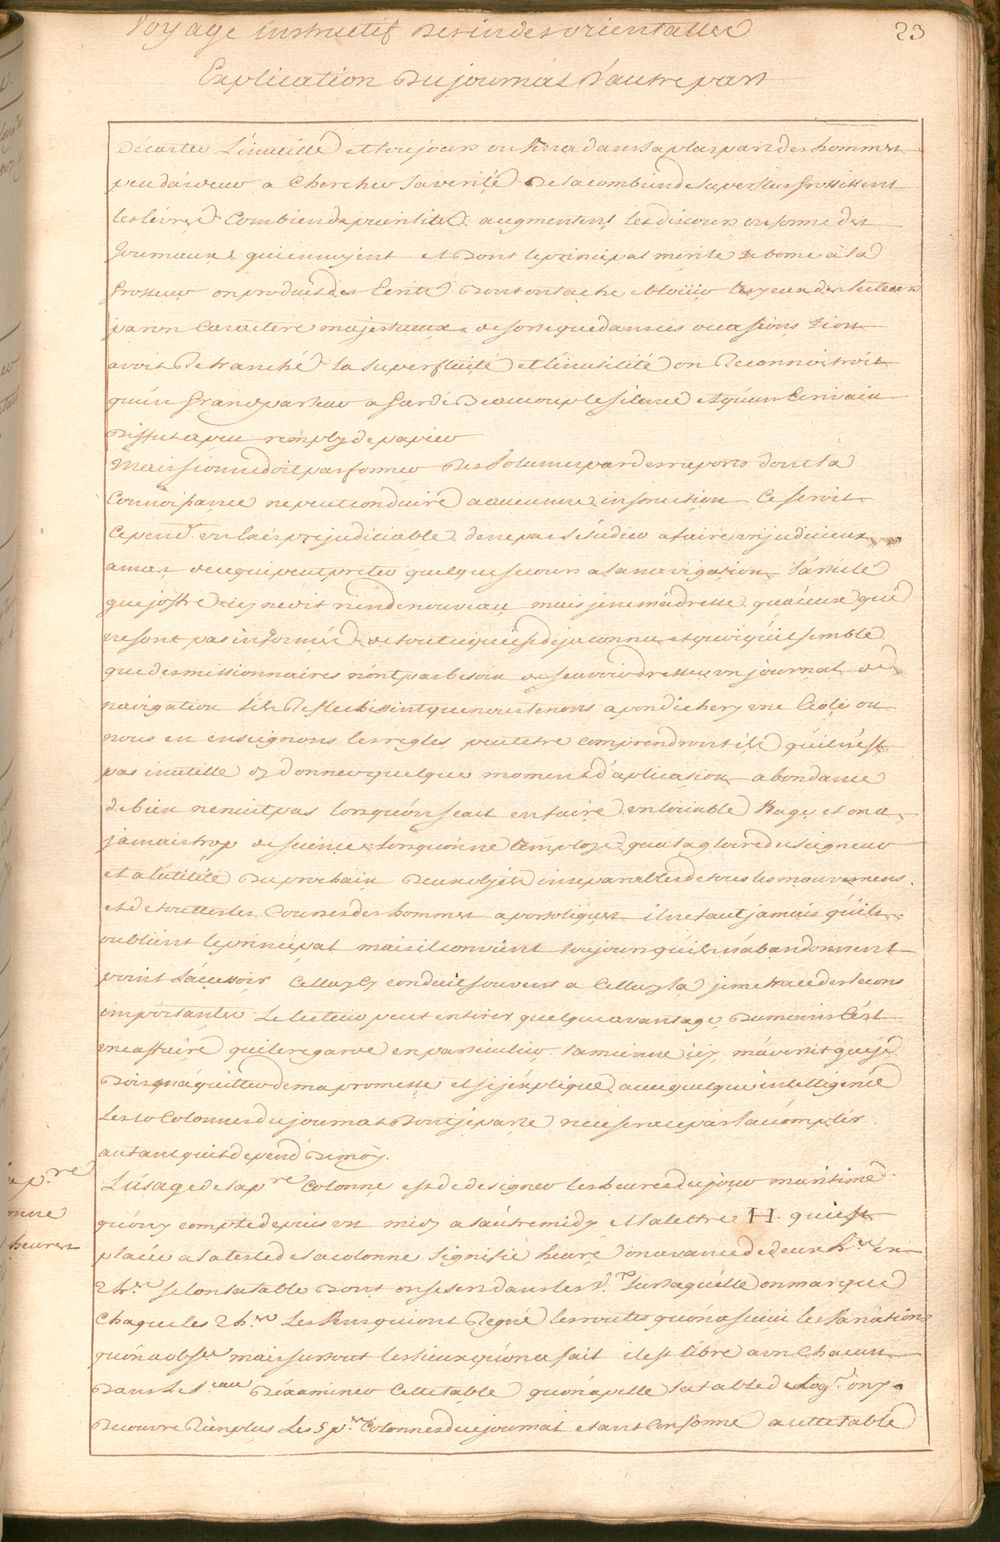 Voyage instructif Des indes orientalles
23
Explication Du journal D'autre part
Decarter L'inutille et toujours on verra dans la plus part des hommes
peu d'ardeur a Chercher la verité De la combien de superflus grossissent
les livres Combien de puerilités augmentent les discours on forme des
Journaux qui ennuyent et Dont le principal merite se borne a la
grosseur on produit des Ecrits Dont on tache eblouir les yeux des lecteurs
par un Caractere majestueux de sorte que dans ces ocasions si on
avoit Retranché la superfluité et l'inutilité on Reconnoistroit
qu'un grand parleur a gardé Beaucoup le silence et qu'un Ecrivain
Diffus a peu remply de papier
Mais si on ne doit pas former Des Volumes par des raports dont la
Connoissance ne peut conduire a aucunne instruction Ce seroit
Cepend.t un laes prejudiciable de ne pas s'étudier a faire un judicieux
amas de ce qui peut preter quelque secours a la navigation l'article
que j'offre icy ne dit rien de nouveau mais je ne m'adresse qu'a ceux qui
ne sont pas informés de tout ce qui est deja connu et quoi qu'il semble
que des missionnaires n'ont pas besoin de sçavoir dresser un journal de
navigation s'ils Reflechissent que nous tenons a pondichery une Ecole ou
nous en enseignons les regles peut etre comprendront ils qu'il n'est
pas inutille d'y donner quelque moment d'aplication abondance
de bien ne nuit pas lorsqu'on sçait en faire un louable Usage et on a
jamais trop de science lorsqu'on ne l'employe qu'a la gloire du seigneur
et a l'utilité Du prochain Deux objets inseparables de tous les mouvemens
et de touttes les Courses des hommes apostoliques il ne faut jamais qu'ils
oublient le principal mais il convient toujours qu'ils n'abandonnent
point L'accessoir Celluy cy conduit souvent a Celluy la je me trace des lecons
importantes Le lecteur peut en tirer quelque avantage Du moins C'est
une affaire qui le regarde en particulier La mienne icy m'avertit que je
Dois m'aquitter de ma promesse et si j'explique avec quelque intelligence
Les 10 Colonnes du journal Dont je parle ne ce sera pas l'acomplir
autant qu'il depend De moy.
L'usage de la p.re Colonne est de designer les heures du jour maritime
qu'on y compte depuis un midy a l'autre midy et la lettre H. qui est
placée a la teste de la colonne signifie heure on avance de deux h.res en
2 h.res selon la table Dont on se sert dans les V.x sur laquelle on marque
Chaque les 2 h.res Les Vens qui ont Regné les routes qu'on a suivi les Variations
qu'on a obs.ée mais surtout les lieux qu'on a fait il est libre a un Chacun
Dans le V.eau D'examiner Cette table qu'on apelle La table de Log. on y
Decouvre Rien plus Les 5 p.res Colonnes du journal etant Conforme a cette table
p.re
heures